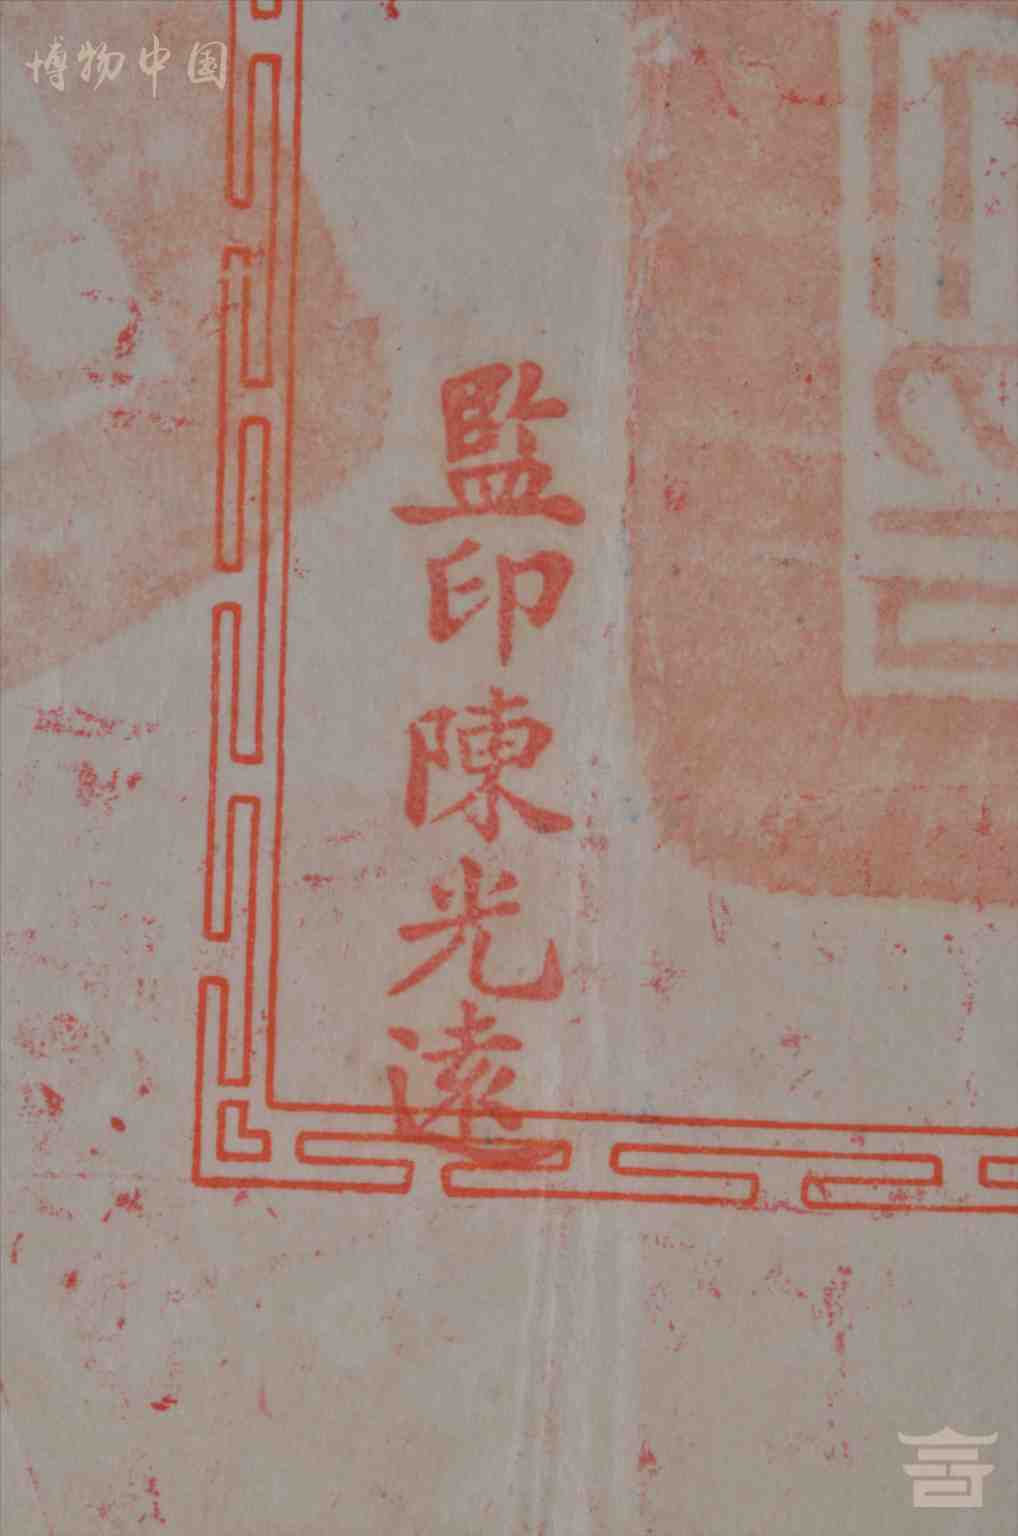 博物中国
監印陳光遠